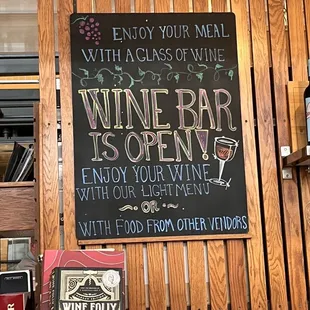 ENJOY YOUR MEAL
WITH A GLASS OF WINE
WINE BAR
IS OPEN!
ENJOY YOUR WINE
WITH OUR LIGHT MENU
OR
WITH FOOD FROM OTHER VENDORS
WINE FOLLY